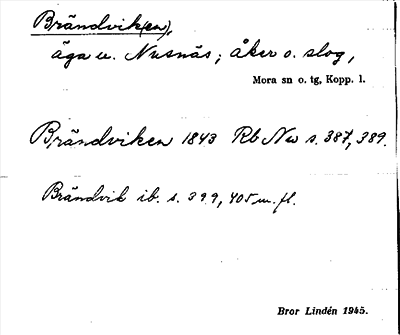 Brändvik(en),
äga u. Nusnäs; åker o. slog,
Mora sn o. tg, Kopp. l.
Brändviken 1843 Rb Nus s. 387, 389.
Brändvik ib. s. 399, 405 m. fl.
Bror Lindén 1945.